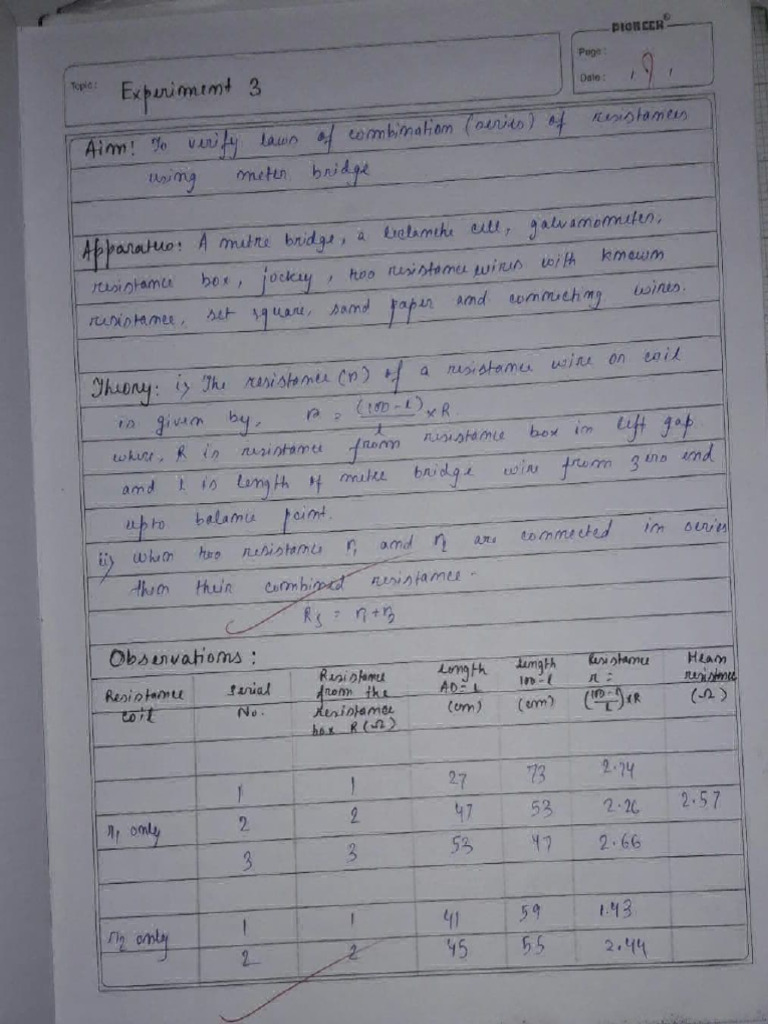 PIONEER
Page:
Topic: Experiment 3
Date:
Aim: To verify laws of combination (series) of resistances
using meter bridge
Apparatus: A metre bridge, a leclanche cell, galvanometer,
resistance box, jockey, two resistance wires with known
resistance, set square, sand paper and connecting wires.
Theory: i) The resistance (r) of a resistance wire or coil
is given by, r = (100-l)/l × R
where, R is resistance from resistance box in left gap
and l is length of metre bridge wire from zero end
upto balance point.
ii) when two resistance r1 and r2 are connected in series
then their combined resistance-
Rs = r1+r2
Observations:
Resistance coil | Serial No. | Resistance from the Resistance box R (Ω) | Length AD = l (cm) | Length 100-l (cm) | Resistance r = (100-l/l)×R | Mean resistance (Ω)
1 1 27 73 2.74
r1 only 2 2 47 53 2.26 2.57
3 3 53 47 2.66
r2 only 1 1 41 59 1.43
2 2 45 55 2.44